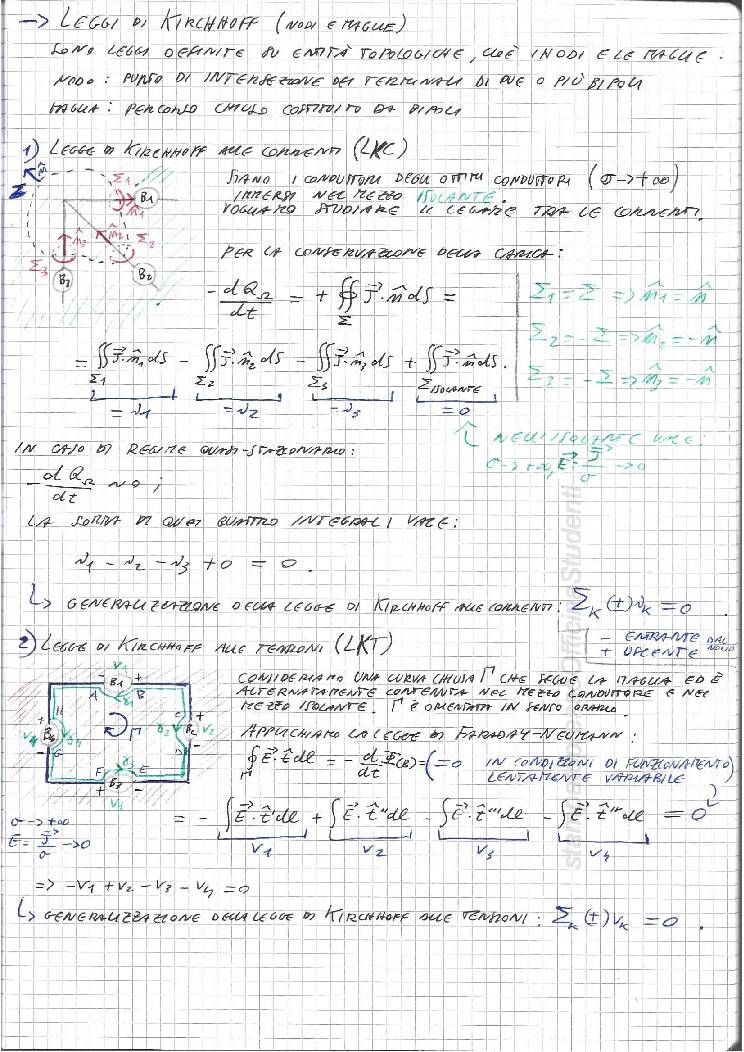 → LEGGI DI KIRCHHOFF (NODI E MAGLIE)
SONO LEGGI DEFINITE SU ENTITÀ TOPOLOGICHE, CIOÈ I NODI E LE MAGLIE.
NODO: PUNTO DI INTERSEZIONE DEI TERMINALI DI DUE O PIÙ BIPOLI
MAGLIA: PERCORSO CHIUSO COSTITUITO DA BIPOLI
1) LEGGE DI KIRCHHOFF ALLE CORRENTI (LKC)
SIANO I CONDUTTORI DEGLI OTTIMI CONDUTTORI (σ→+∞)
IMMERSI NEL MEZZO ISOLANTE.
VOGLIAMO STUDIARE IL LEGAME TRA LE CORRENTI.
Σ n̂ Σ1 n̂1 B1
Σ3 n̂3 n̂2 Σ2
B3 B2
PER LA CONSERVAZIONE DELLA CARICA:
-dQΩ/dt = + ∯Σ J⃗·n̂ dS =
Σ1 = Σ => n̂1 = n̂
Σ2 = -Σ => n̂2 = -n̂
Σ3 = -Σ => n̂3 = -n̂
= ∬Σ1 J⃗·n̂1 dS - ∬Σ2 J⃗·n̂2 dS - ∬Σ3 J⃗·n̂3 dS + ∬Σ ISOLANTE J⃗·n̂ dS.
= i1 = i2 = i3 = 0
NELL'ISOLANTE VALE:
σ→+∞, E⃗ = J⃗/σ → 0
IN CASO DI REGIME QUASI-STAZIONARIO:
-dQΩ/dt ~ 0;
LA SOMMA DI QUEI QUATTRO INTEGRALI VALE:
i1 - i2 - i3 + 0 = 0.
↳ GENERALIZZAZIONE DELLA LEGGE DI KIRCHHOFF ALLE CORRENTI: ΣK (±) iK = 0
- ENTRANTE DAL NODO
+ USCENTE
2) LEGGE DI KIRCHHOFF ALLE TENSIONI (LKT)
V1
- B1 +
A γ1 B
H C
V4 B4 γ4 Γ γ2 B2 V2
G D
F γ3 E
+ B3 -
V3
CONSIDERIAMO UNA CURVA CHIUSA Γ CHE SEGUE LA MAGLIA ED È
ALTERNATAMENTE CONTENUTA NEL MEZZO CONDUTTORE E NEL
MEZZO ISOLANTE. Γ È ORIENTATA IN SENSO ORARIO.
APPLICHIAMO LA LEGGE DI FARADAY-NEUMANN:
∮Γ E⃗·t̂ dl = - d/dt Φ(B) = (=0 IN CONDIZIONI DI FUNZIONAMENTO
LENTAMENTE VARIABILE)
= - ∫E⃗·t̂' dl + ∫E⃗·t̂'' dl - ∫E⃗·t̂''' dl - ∫E⃗·t̂'''' dl = 0
V1 V2 V3 V4
σ→+∞
E = J⃗/σ → 0
=> -V1 + V2 - V3 - V4 = 0
↳ GENERALIZZAZIONE DELLA LEGGE DI KIRCHHOFF ALLE TENSIONI: ΣK (±) VK = 0.